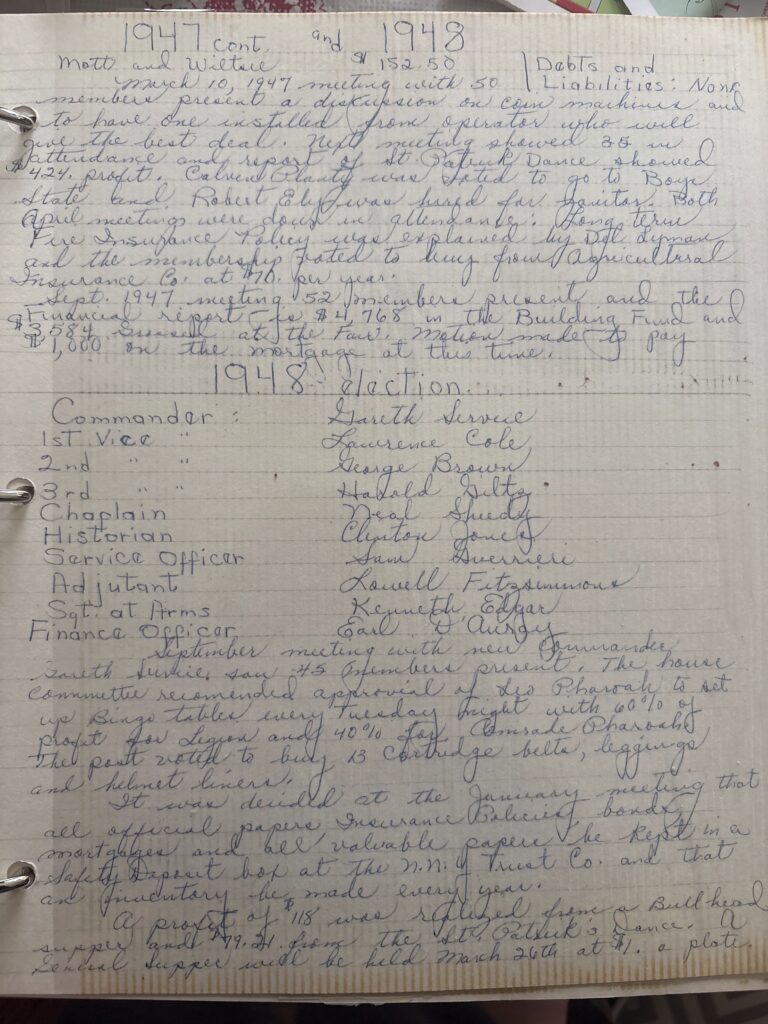 1947 cont. and 1948
Mott and Wiltsie $152.50 | Debts and
March 10, 1947 meeting with 50 | Liabilities: None
members present a diskussion on coin machines and
to have one installed from operator who will
give the best deal. Next meeting showed 35 in
attendance and report of St. Patrick Dance showed
$424. profit. Calvin Plantz was voted to go to Boys
State and Robert Ely was hired for janitor. Both
April meetings were down in attendance. Long term
Fire Insurance Policy was explained by Lyman
and the membership voted to buy from Agricultural
Insurance Co. at $70. per year.
Sept. 1947 meeting 52 members present and the
Financial report is $4,768 in the Building Fund and
$3,584 grossed at the Fair. Motion made to pay
$1,000 on the mortgage at this time.
1948 election
Commander: Gareth Service
1st Vice " Lawrence Cole
2nd " " George Brown
3rd " " Harold Giltz
Chaplain Neal Sheedy
Historian Clinton Jones
Service Officer Sam Guerrieri
Adjutant Lowell Fitzsimmons
Sgt. at Arms Kenneth Edgar
Finance Officer Earl
September meeting with new Commander
Gareth Service, saw 45 members present. The house
committe recomended approvial of Leo Pharoah to set
up Bingo tables every Tuesday night with 60% of
profit for Legion and 40% for Comrade Pharoah.
The post voted to buy 13 cartredge belts, leggings
and helmet liners.
It was decided at the January meeting that
all official papers Insurance Policies, bonds,
mortgages and all valuable papers be kept in a
Safety Deposit box at the N.N.Y Trust Co. and that
an inventory be made every year.
A profit of $118 was realized from a Bullhead
supper and $79.21 from the St. Patrick's Dance. A
General Supper will be held March 26th at $1. a plate.